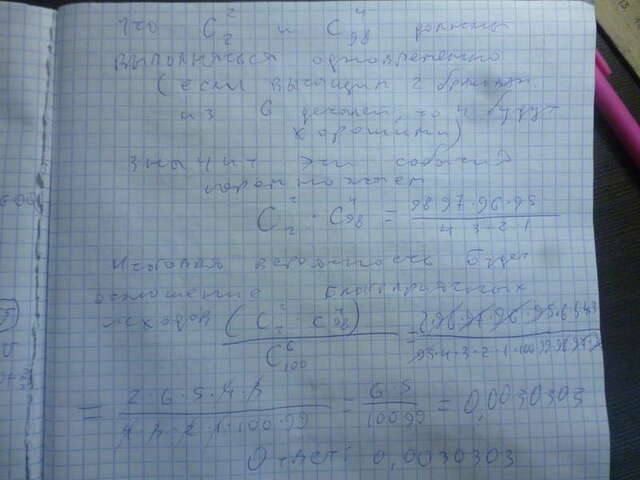 что C₂² и C₉₈⁴ должны
выполняться одновременно
(если вытащил 2 бракован
из 6 деталей, то 4 будут
хорошими)
значит эти события
перемножаем
C₂² · C₉₈⁴ = 98·97·96·95 / 4·3·2·1
Искомая вероятность будет
отношение благоприятных
исходов (C₂² · C₉₈⁴) / C₁₀₀⁶ =
= 2·6·5·4·3 / 4·3·2·1·100·99 = 6·5 / 100·99 = 0,0030303
Ответ: 0,0030303